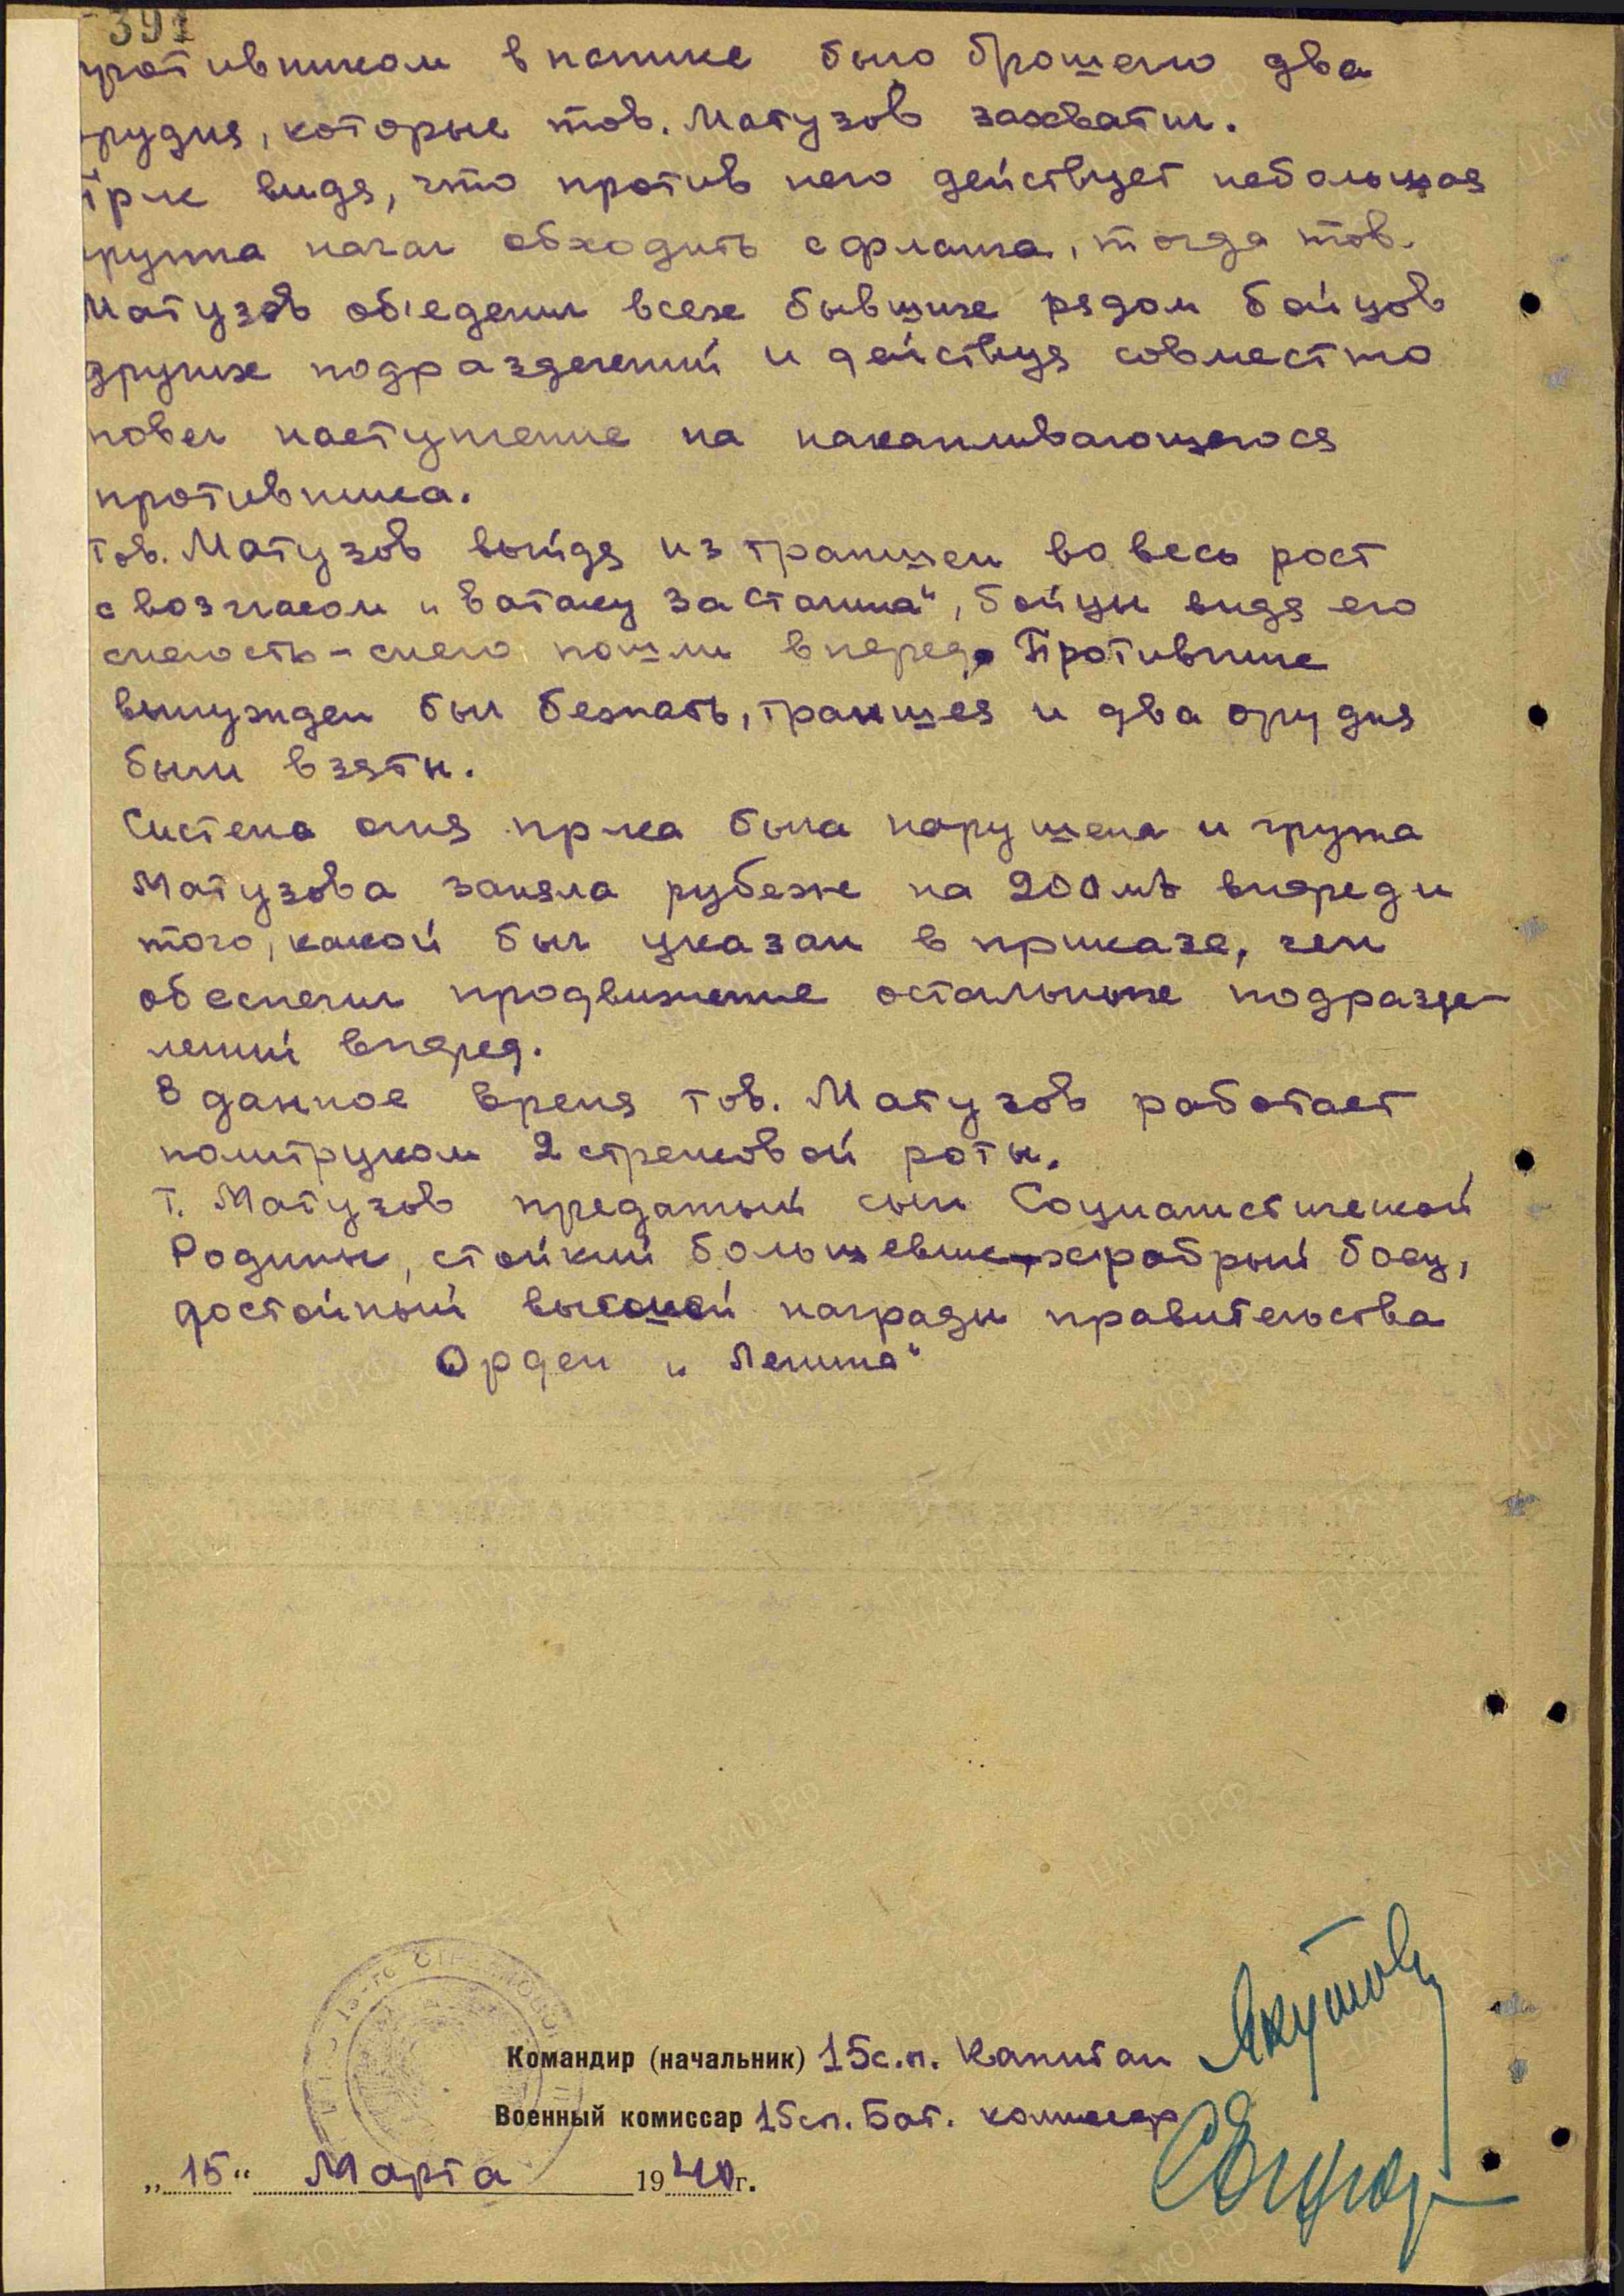 391
противником в панике было брошено два
орудия, которые тов. Матузов захватил.
пр-к видя, что против него действует небольшая
группа начал обходить с фланга, тогда тов.
Матузов об'еденил всех бывших рядом бойцов
других подразделений и действуя совместно
повел наступление на накапливающегося
противника.
Тов. Матузов выйдя из траншеи во весь рост
с возгласом „в атаку за Сталина“, бойцы видя его
смелость - смело пошли вперед. Противник
вынужден был бежать, траншея и два орудия
были взяты.
Система огня пр-ка была нарушена и группа
Матузова заняла рубеж на 200 мт впереди
того, какой был указан в приказе, чем
обеспечил продвижение остальных подразде-
лений вперед.
В данное время тов. Матузов работает
политруком 2 стрелковой роты.
Т. Матузов преданный сын Социалистической
Родины, стойкий большевик, храбрый боец,
достойный высокой награды правительства
Орден „Ленина“
Командир (начальник) 15 с.п. Капитан Якутов
Военный комиссар 15 сп. Бат. комиссар
„15“ Марта 1940 г.